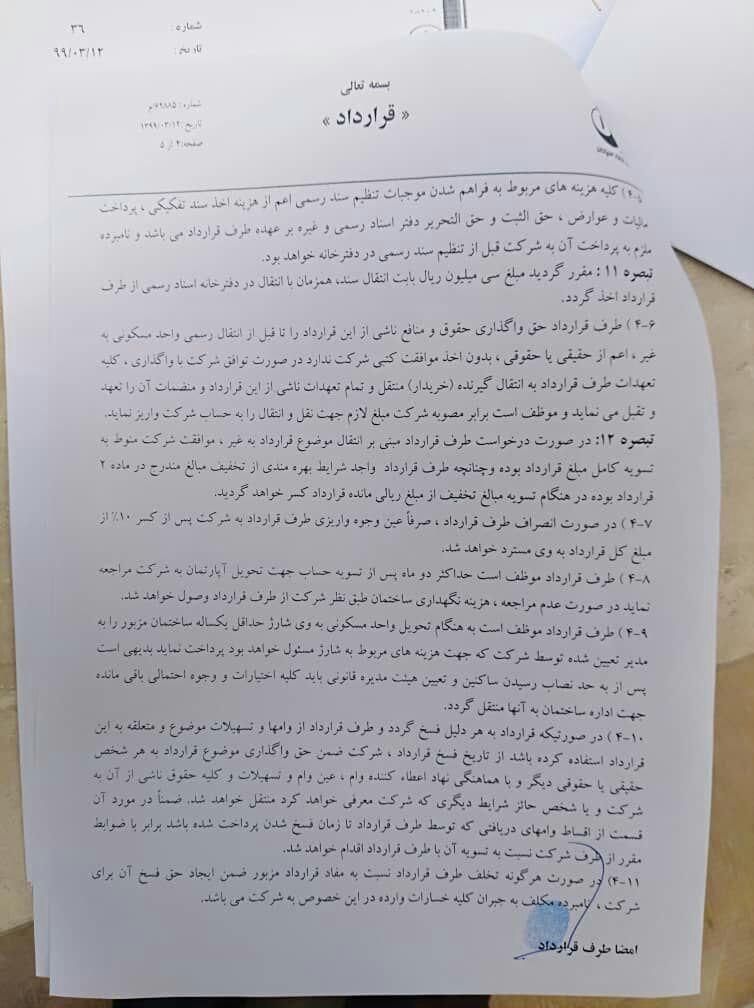 شماره : ۳۶
تاریخ : ۹۹/۰۳/۱۲
بسمه تعالی
« قرارداد »
شماره: ۶۹۸۸۵/م
تاریخ: ۱۳۹۹/۰۳/۱۲
صفحه: ۴ از ۵
۴-۵) کلیه هزینه های مربوط به فراهم شدن موجبات تنظیم سند رسمی اعم از هزینه اخذ سند تفکیکی ، پرداخت
مالیات و عوارض ، حق الثبت و حق التحریر دفتر اسناد رسمی و غیره بر عهده طرف قرارداد می باشد و نامبرده
ملزم به پرداخت آن به شرکت قبل از تنظیم سند رسمی در دفترخانه خواهد بود.
تبصره ۱۱ : مقرر گردید مبلغ سی میلیون ریال بابت انتقال سند، همزمان با انتقال در دفترخانه اسناد رسمی از طرف
قرارداد اخذ گردد.
۴-۶ ) طرف قرارداد حق واگذاری حقوق و منافع ناشی از این قرارداد را تا قبل از انتقال رسمی واحد مسکونی به
غیر ، اعم از حقیقی یا حقوقی ، بدون اخذ موافقت کتبی شرکت ندارد در صورت توافق شرکت با واگذاری ، کلیه
تعهدات طرف قرارداد به انتقال گیرنده (خریدار) منتقل و تمام تعهدات ناشی از این قرارداد و منضمات آن را تعهد
و تقبل می نماید و موظف است برابر مصوبه شرکت مبلغ لازم جهت نقل و انتقال را به حساب شرکت واریز نماید.
تبصره ۱۲: در صورت درخواست طرف قرارداد مبنی بر انتقال موضوع قرارداد به غیر ، موافقت شرکت منوط به
تسویه کامل مبلغ قرارداد بوده وچنانچه طرف قرارداد واجد شرایط بهره مندی از تخفیف مبالغ مندرج در ماده ۲
قرارداد بوده در هنگام تسویه مبالغ تخفیف از مبلغ ریالی مانده قرارداد کسر خواهد گردید.
۴-۷ ) در صورت انصراف طرف قرارداد ، صرفاً عین وجوه واریزی طرف قرارداد به شرکت پس از کسر ۱۰٪ از
مبلغ کل قرارداد به وی مسترد خواهد شد.
۴-۸ ) طرف قرارداد موظف است حداکثر دو ماه پس از تسویه حساب جهت تحویل آپارتمان به شرکت مراجعه
نماید در صورت عدم مراجعه ، هزینه نگهداری ساختمان طبق نظر شرکت از طرف قرارداد وصول خواهد شد.
۴-۹ ) طرف قرارداد موظف است به هنگام تحویل واحد مسکونی به وی شارژ حداقل یکساله ساختمان مزبور را به
مدیر تعیین شده توسط شرکت که جهت هزینه های مربوط به شارژ مسئول خواهد بود پرداخت نماید بدیهی است
پس از به حد نصاب رسیدن ساکنین و تعیین هیئت مدیره قانونی باید کلیه اختیارات و وجوه احتمالی باقی مانده
جهت اداره ساختمان به آنها منتقل گردد.
۴-۱۰ ) در صورتیکه قرارداد به هر دلیل فسخ گردد و طرف قرارداد از وامها و تسهیلات موضوع و متعلقه به این
قرارداد استفاده کرده باشد از تاریخ فسخ قرارداد ، شرکت ضمن حق واگذاری موضوع قرارداد به هر شخص
حقیقی یا حقوقی دیگر و با هماهنگی نهاد اعطاء کننده وام ، عین وام و تسهیلات و کلیه حقوق ناشی از آن به
شرکت و یا شخص حائز شرایط دیگری که شرکت معرفی خواهد کرد منتقل خواهد شد. ضمناً در مورد آن
قسمت از اقساط وامهای دریافتی که توسط طرف قرارداد تا زمان فسخ شدن پرداخت شده باشد برابر با ضوابط
مقرر از طرف شرکت نسبت به تسویه آن با طرف قرارداد اقدام خواهد شد.
۴-۱۱) در صورت هرگونه تخلف طرف قرارداد نسبت به مفاد قرارداد مزبور ضمن ایجاد حق فسخ آن برای
شرکت ، نامبرده مکلف به جبران کلیه خسارات وارده در این خصوص به شرکت می باشد.
امضا طرف قرارداد